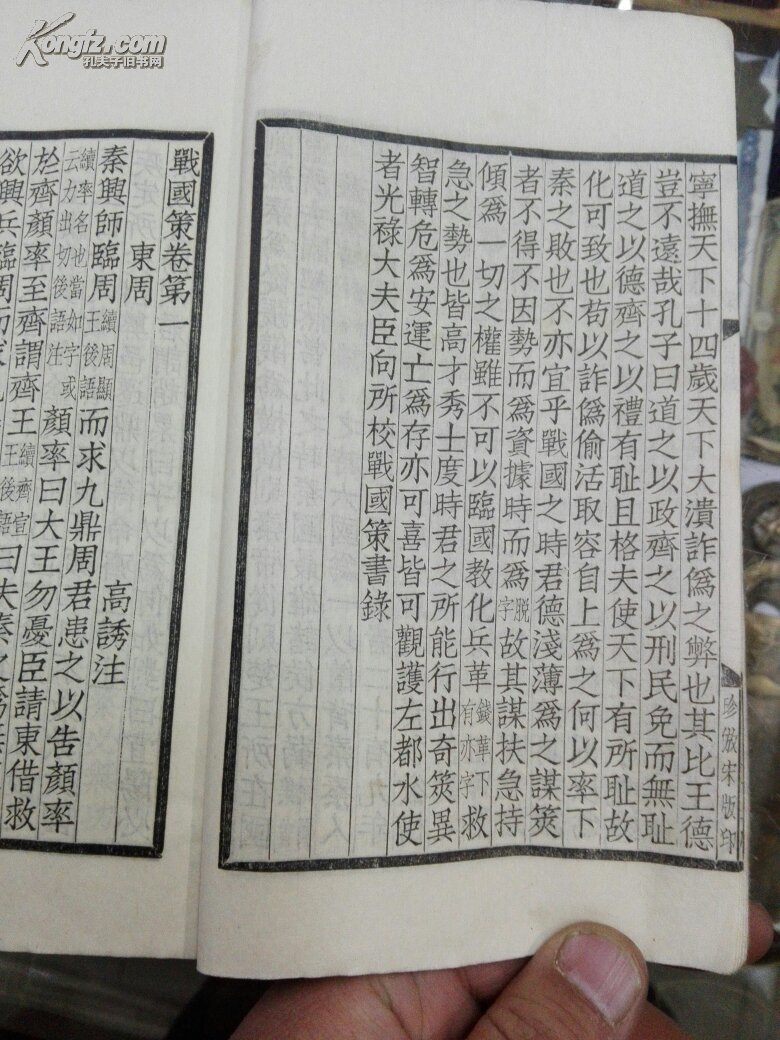 Kongfz.com
孔夫子旧书网
寧撫天下十四歲天下大潰詐僞之弊也其比王德
豈不遠哉孔子曰道之以政齊之以刑民免而無耻
道之以德齊之以禮有耻且格夫使天下有所耻故
化可致也苟以詐僞偷活取容自上爲之何以率下
秦之敗也不亦宜乎戰國之時君德淺薄爲之謀筴
者不得不因勢而爲資據時而爲脱字故其謀扶急持
傾爲一切之權雖不可以臨國教化兵革錢革下有亦字救
急之勢也皆高才秀士度時君之所能行出奇筴異
智轉危爲安運亡爲存亦可喜皆可觀護左都水使
者光祿大夫臣向所校戰國策書錄
珍倣宋版印
戰國策卷第一
東周
高誘注
秦興師臨周續周顯王後語而求九鼎周君患之以告顏率
續率名也當如字或云力出切後語注顏率曰大王勿憂臣請東借救
於齊顏率至齊謂齊王續齊宣王後語曰夫秦之爲無
欲興兵臨周而求九